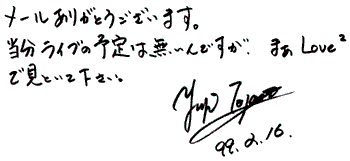 メールありがとうございます。
当分ライブの予定は無いんですが、まぁLove²
で見といて下さい。
99.2.16.